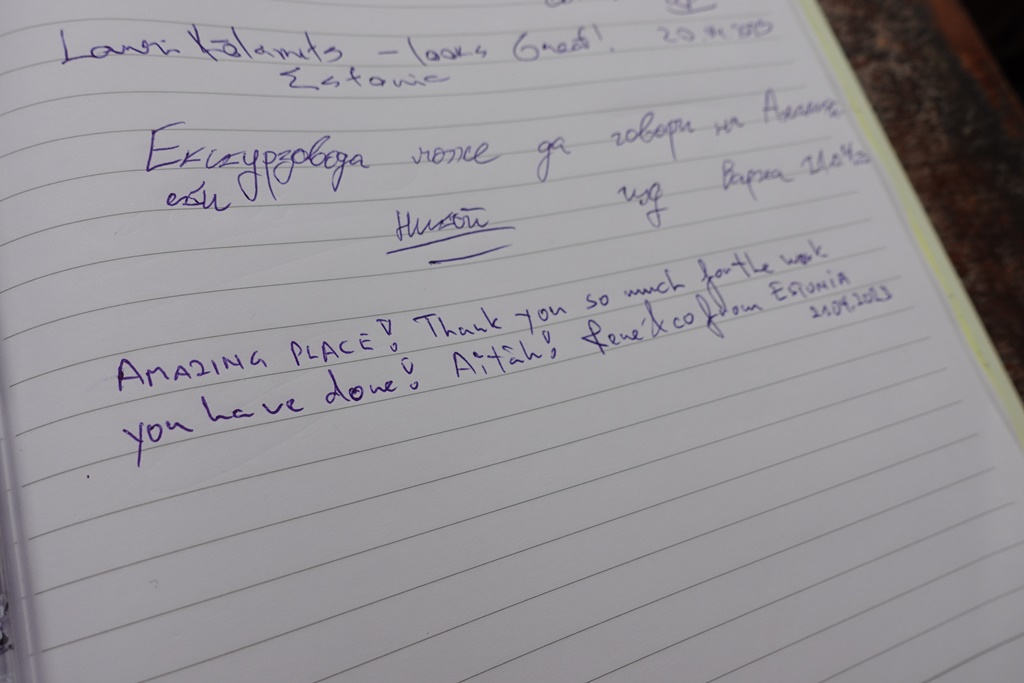 Lauri Kõlamets – looks Good! 20.04.2023
Estonia
Екскурзовода може да говори на Английски
Никой из Варна 21.04.23
AMAZING PLACE! Thank you so much for the work
you have done! Aitäh! René & co from ESTONIA
21.04.2023